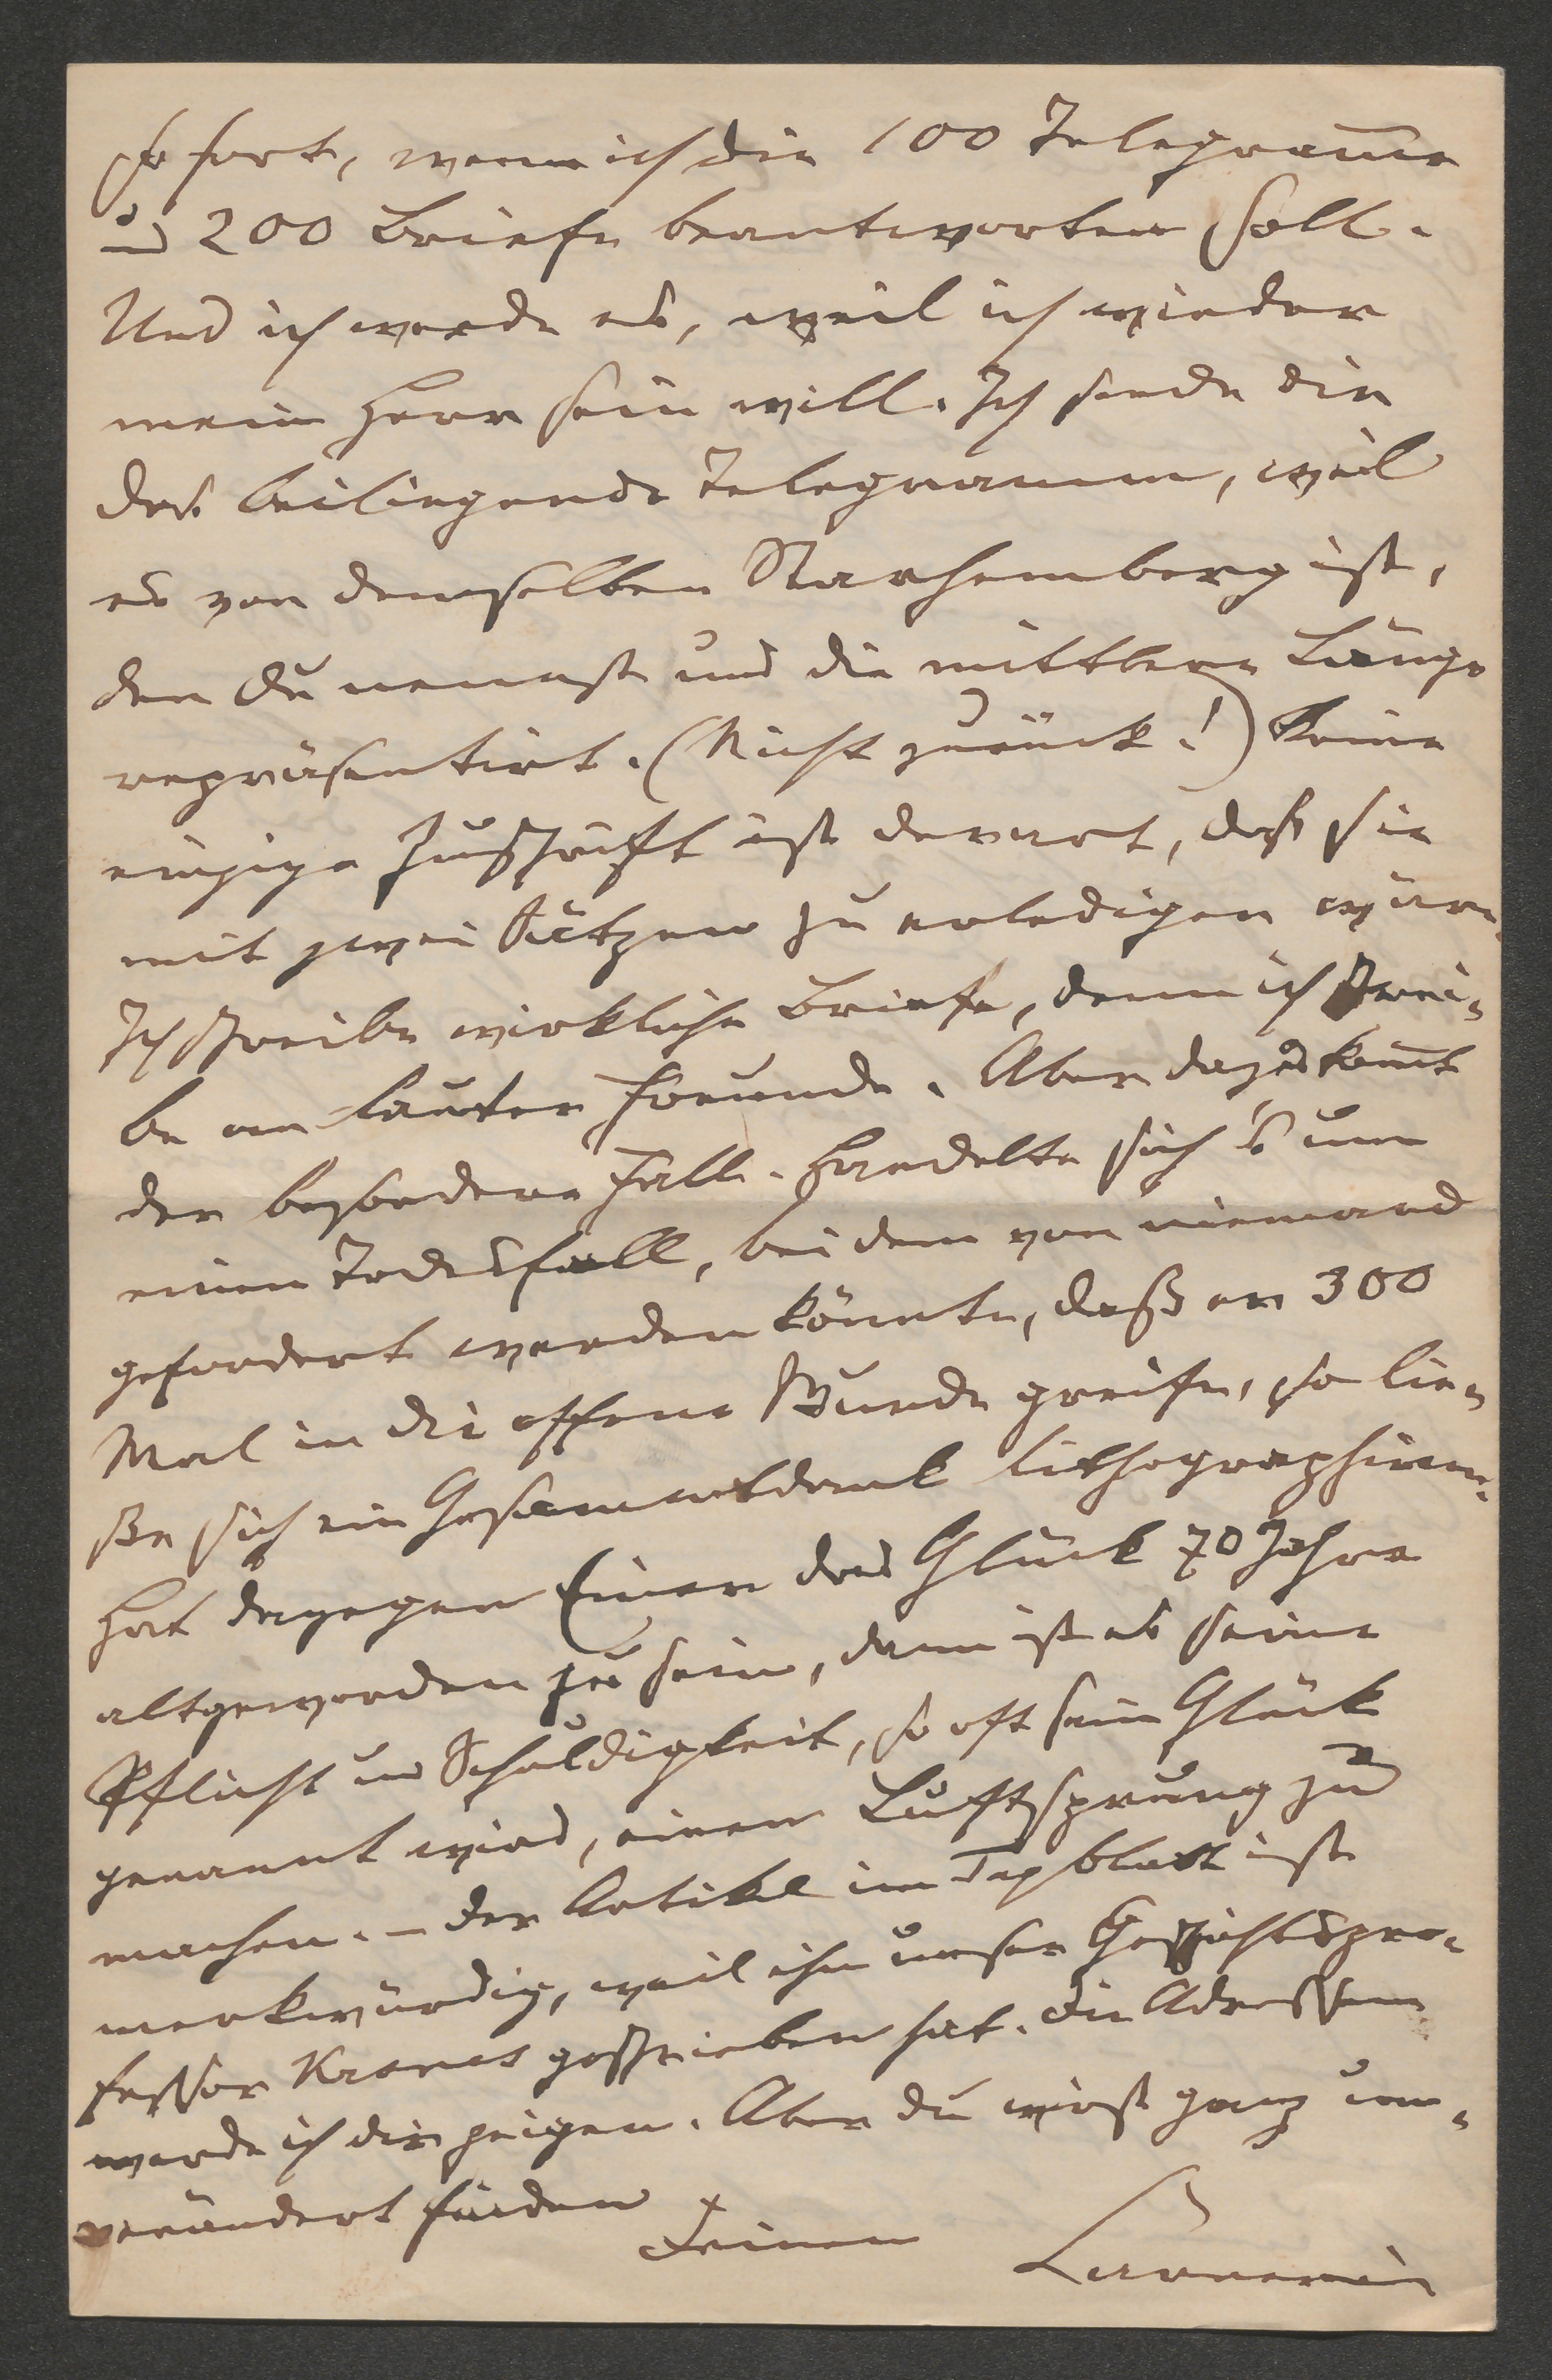 so fort, wenn ich die 100 Telegrame
und 200 Briefe beantworten soll.
Und ich werde es, weil ich wieder
mein Herr sein will. Ich sende dir
das beiliegende Telegramm, weil
es von demselben Starhemberg ist,
den du nennst und die mittlere Länge
repräsentirt. (Nicht zurück!) Keine
einzige Zuschrift ist derart, daß sie
mit zwei Sätzen zu erledigen wäre.
Ich schreibe wirkliche Briefe, denn ich schrei-
be an lauter Freunde. Aber dazu komt
der besondere Fall. Handelte sich's um
einen Todesfall, bei dem von niemand
gefordert werden könnte, daß er 300
Mal in die offene Wunde greife, so lie-
ße sich ein Gesammtdank lithographiren.
Hat dagegen Einer das Glück 70 Jahre
altgeworden zu sein, dann ist es seine
Pflicht und Schuldigkeit, so oft sein Glück
genannt wird, einen Luftsprung zu
machen. – Der Artikel im Tagblatt ist
merkwürdig, weil ihn unser Geschichtspro-
fessor Krones geschrieben hat. Die Adressen
werde ich dir zeigen. Aber du wirst ganz un-
verändert finden
Deinen